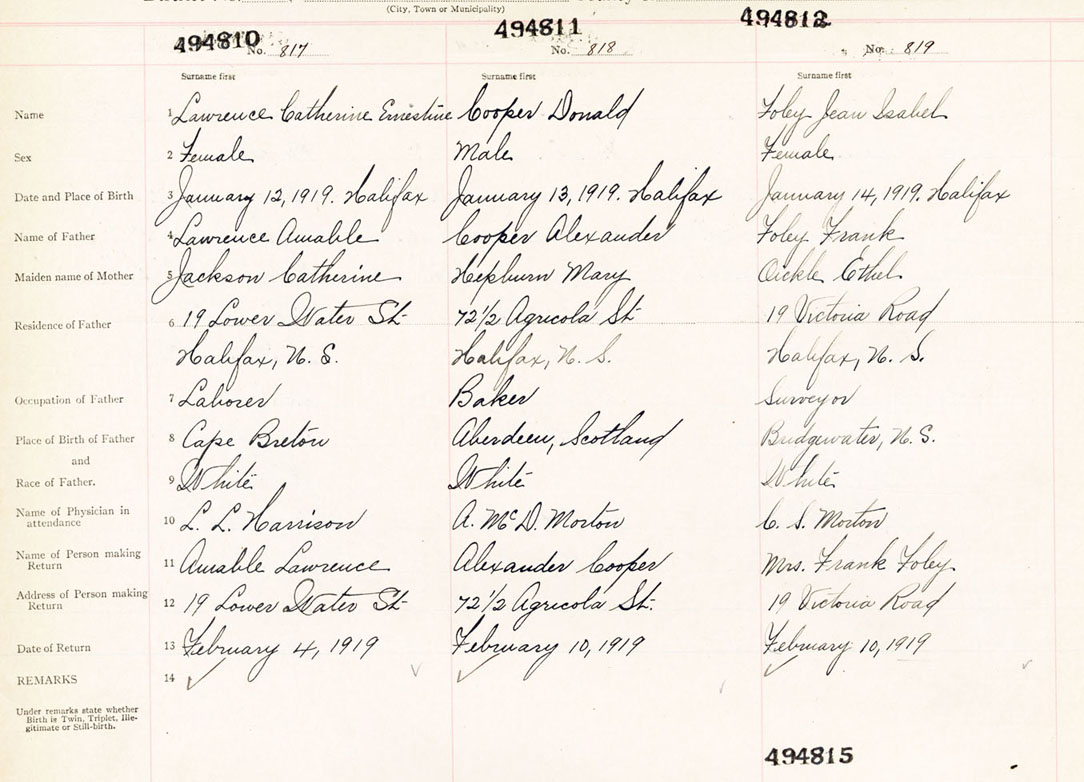 (City, Town or Municipality)
494810 494811 494812
No. 817 No. 818 No. 819
Surname first Surname first Surname first
Name 1 Lawrence Catherine Ernestine Cooper Donald Foley Jean Isabel
Sex 2 Female Male Female
Date and Place of Birth 3 January 12, 1919. Halifax January 13, 1919. Halifax January 14, 1919. Halifax
Name of Father 4 Lawrence Amable Cooper Alexander Foley Frank
Maiden name of Mother 5 Jackson Catherine Hepburn Mary Oickle Ethel
Residence of Father 6 19 Lower Water St. 72½ Agricola St. 19 Victoria Road
Halifax, N. S. Halifax, N. S. Halifax, N. S.
Occupation of Father 7 Laborer Baker Surveyor
Place of Birth of Father 8 Cape Breton Aberdeen, Scotland Bridgewater, N. S.
and
Race of Father. 9 White White White
Name of Physician in attendance 10 L. L. Harrison A. McD. Morton C. S. Morton
Name of Person making Return 11 Amable Lawrence Alexander Cooper Mrs. Frank Foley
Address of Person making Return 12 19 Lower Water St. 72½ Agricola St. 19 Victoria Road
Date of Return 13 February 4, 1919 February 10, 1919 February 10, 1919
REMARKS 14
Under remarks state whether
Birth is Twin, Triplet, Ille-
gitimate or Still-birth.
494815